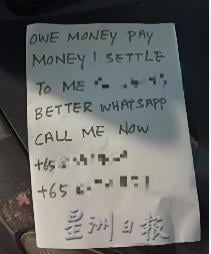 OWE MONEY PAY
MONEY! SETTLE
TO ME
BETTER WHATSAPP
CALL ME NOW
+65
+65
星洲日報